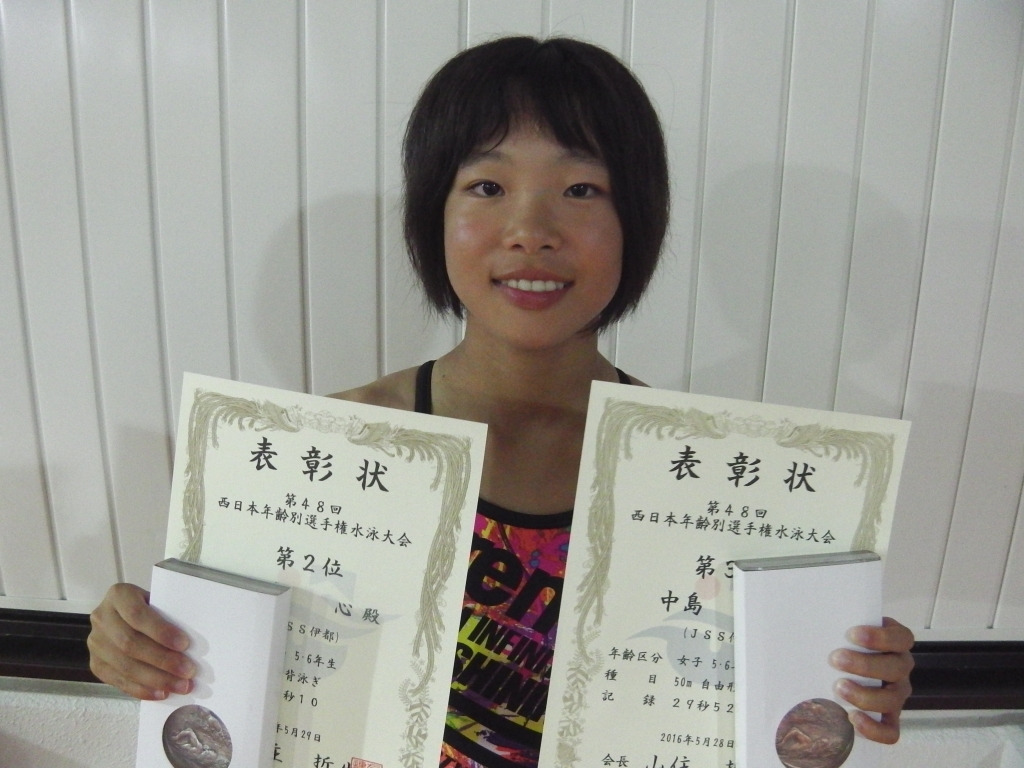 表彰状
第48回
西日本年齢別選手権水泳大会
第2位
心 殿
SS伊都)
5・6年生
背泳ぎ
秒10
5月29日
哲
表彰状
第48回
西日本年齢別選手権水泳大会
第3
中島
(JSS
年齢区分 女子 5・6
種目 50m 自由形
記録 29秒52
2016年5月28日
会長 山住
en
INFINI
SHINI